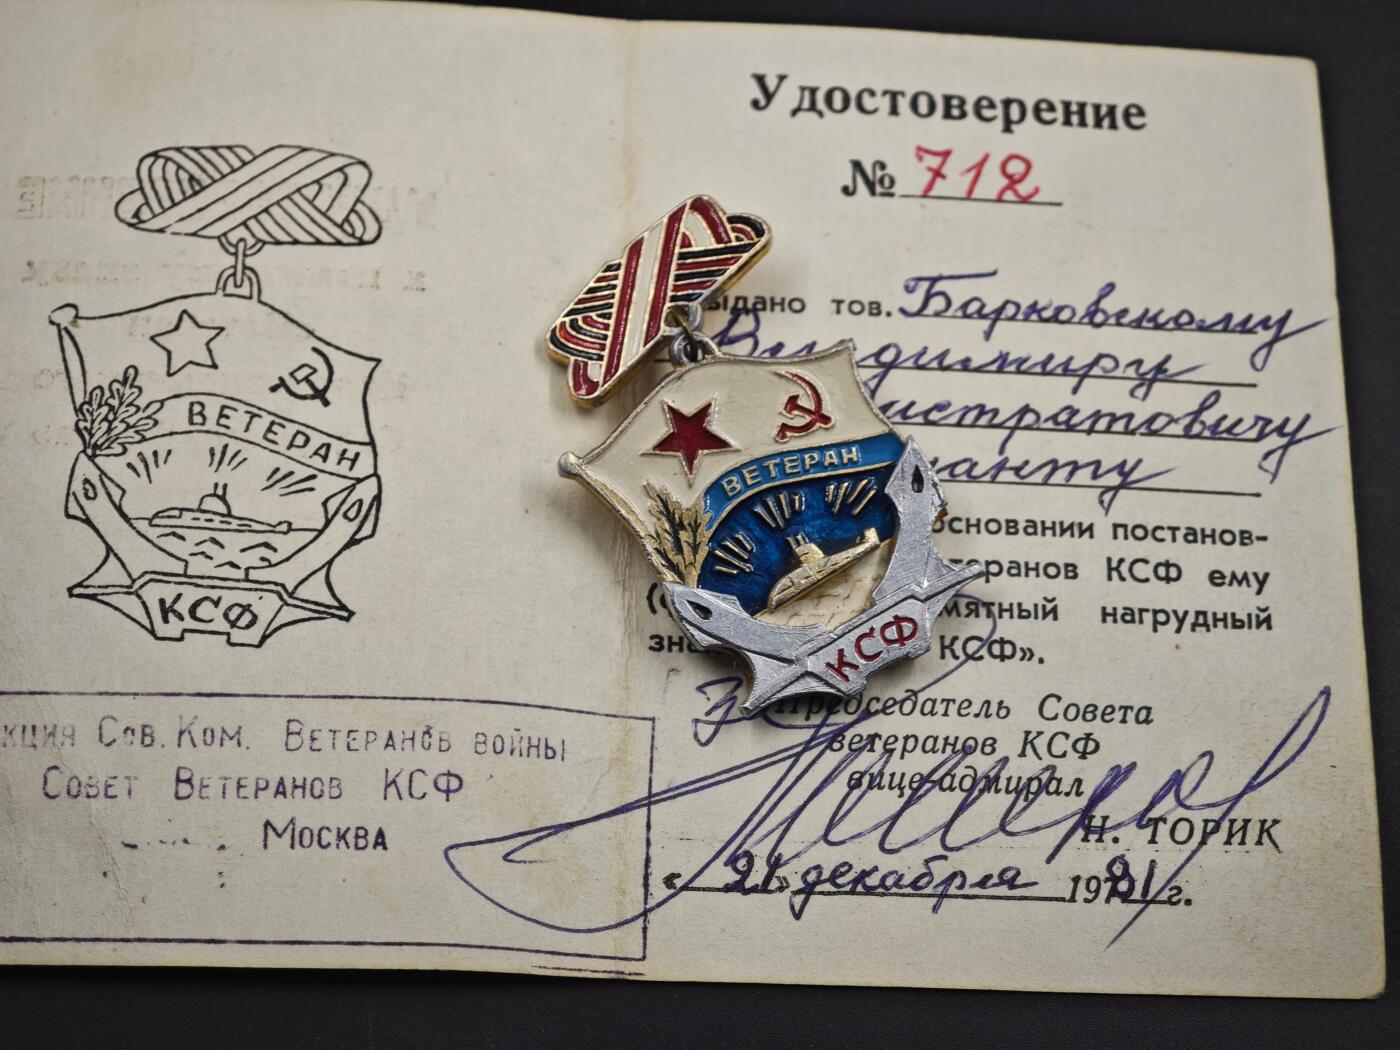 ВЕТЕРАН
КСФ
кция Сов. Ком. Ветеранов войны
Совет Ветеранов КСФ
Москва
ВЕТЕРАН
КСФ
Удостоверение
№ 712
ыдано тов. Барковскому
Владимиру
истратовичу
анту
основании постанов-
теранов КСФ ему
мятный нагрудный
зн КСФ».
Председатель Совета
ветеранов КСФ
вице-адмирал
Н. ТОРИК
«21» декабря 1981 г.